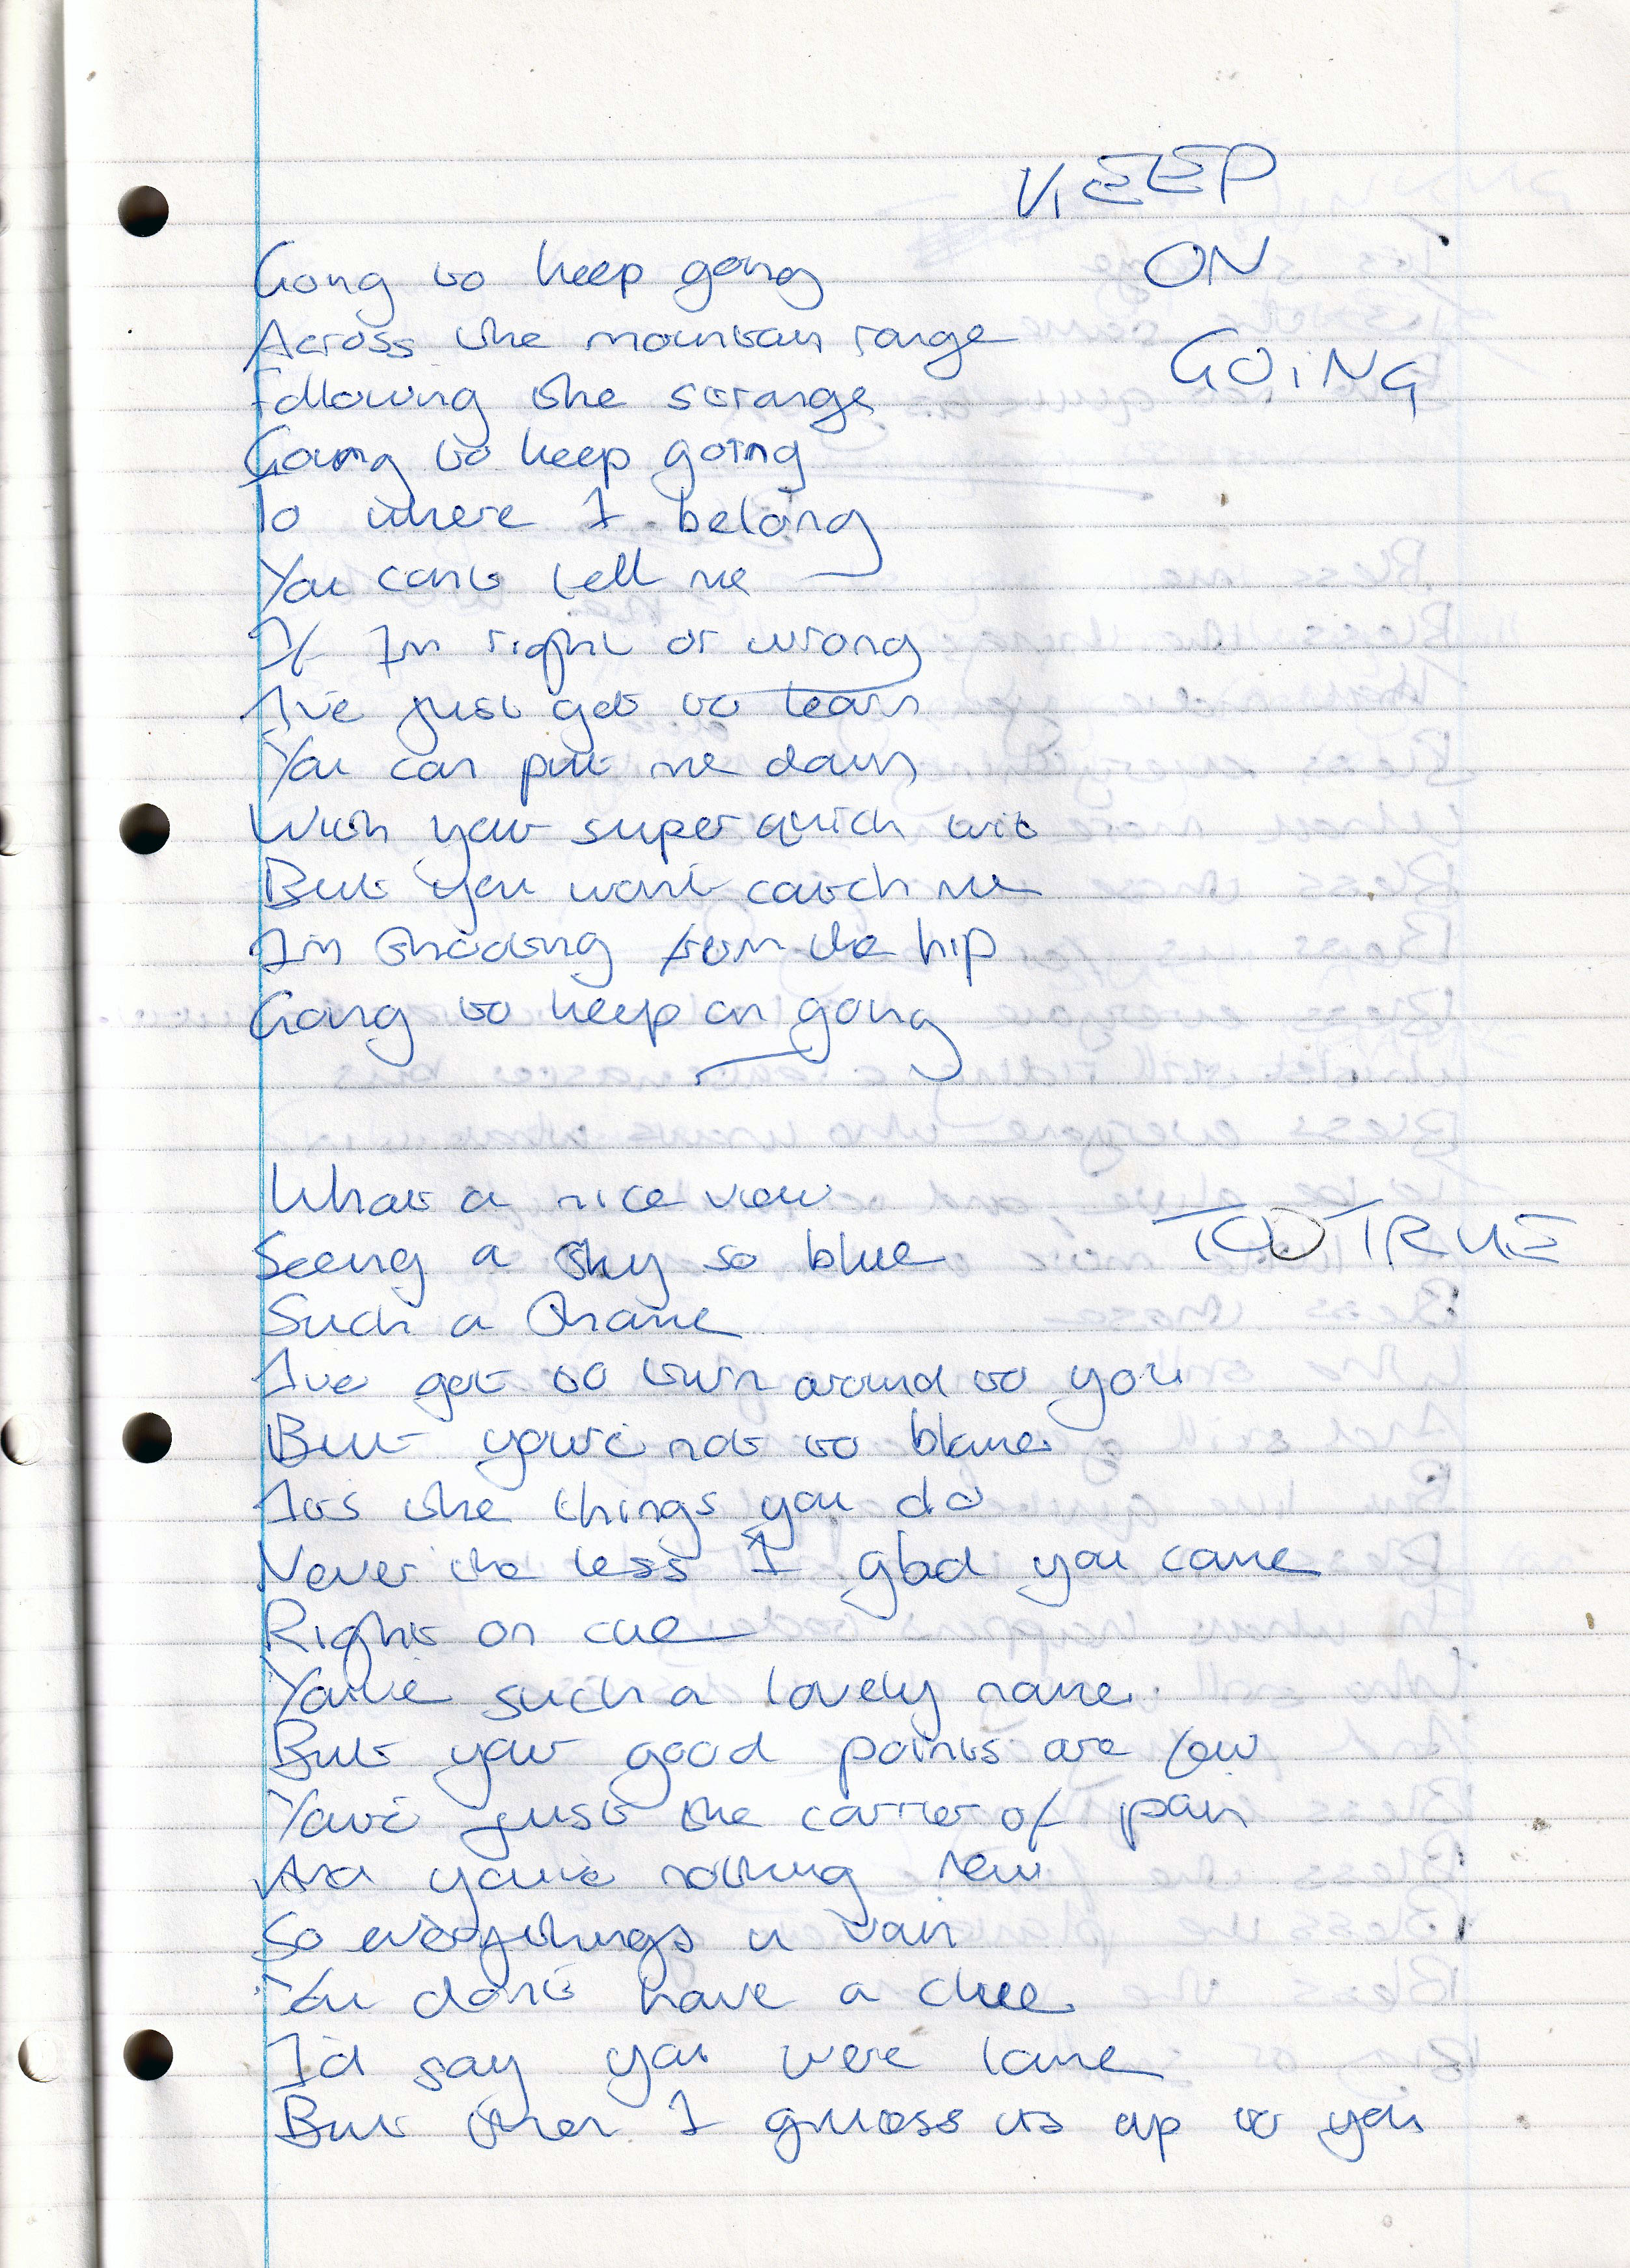 KEEP
ON
GOING
Going to keep going
Across the mountain range
Following the strange
Going to keep going
To where I belong
You cant tell me
If Im right or wrong
I've just got to learn
You can put me down
With your super quick wit
But you wont catch me
Im shooting from the hip
Going to keep on going
TOO TRUE
What a nice view
Seeing a sky so blue
Such a shame
Ive got to turn around to you
But your'e not to blame
Its the things you do
Never the less I glad you came
Right on cue
You've such a lovely name
But your good points are few
Your'e just the carrier of pain
And your'e nothing new
So everythings in vain
You don't have a clue
I'd say you were lame
But then I guess its up to you